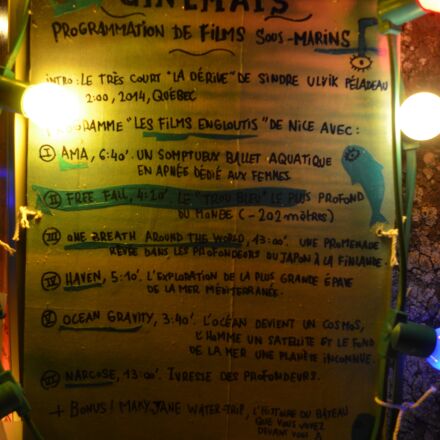 CINEMAIS
PROGRAMMATION DE FILMS SOUS-MARINS
INTRO: LE TRÈS COURT "LA DÉRIVE" DE SINDRE ULVIK PÉLADEAU
2:00, 2014, QUÉBEC
PROGRAMME "LES FILMS ENGLOUTIS" DE NICE AVEC:
I AMA, 6:40'. UN SOMPTUEUX BALLET AQUATIQUE
EN APNÉE DÉDIÉ AUX FEMMES
II FREE FALL, 4:20'. LE "TROU BLEU" LE PLUS PROFOND
DU MONDE (-202 mètres)
III ONE BREATH AROUND THE WORLD, 13:00'. UNE PROMENADE
RÊVÉE DANS LES PROFONDEURS DU JAPON À LA FINLANDE.
IV HAVEN, 5:10'. L'EXPLORATION DE LA PLUS GRANDE ÉPAVE
DE LA MER MÉDITERRANÉE.
V OCEAN GRAVITY, 3:40'. L'OCÉAN DEVIENT UN COSMOS,
L'HOMME UN SATELLITE ET LE FOND
DE LA MER UNE PLANÈTE INCONNUE.
NARCOSE, 13:00'. IVRESSE DES PROFONDEURS.
+ BONUS! MARY-JANE WATER-TRIP, L'HISTOIRE DU BATEAU
QUE VOUS VOYEZ
DEVANT VOUS